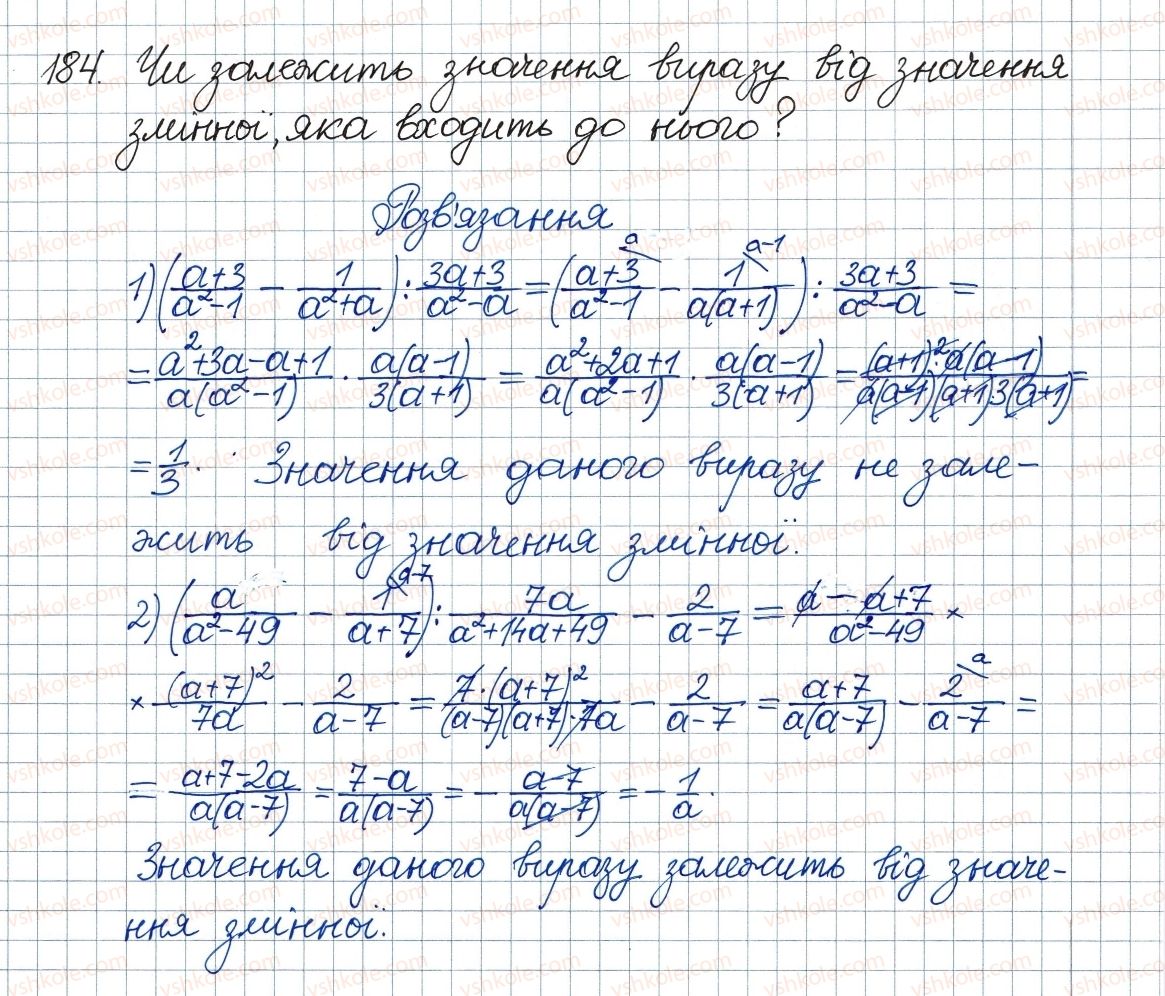 184. Чи залежить значення виразу від значення
змінної, яка входить до нього?
Розв'язання
1) ((a+3)/(a²-1) - 1/(a²+a)) : (3a+3)/(a²-a) = ((a+3)/(a²-1) ^a - 1/(a(a+1)) ^a-1) : (3a+3)/(a²-a) =
= (a²+3a-a+1)/(a(a²-1)) · a(a-1)/(3(a+1)) = (a²+2a+1)/(a(a²-1)) · a(a-1)/(3(a+1)) = ((a+1)²·a(a-1))/(a(a-1)(a+1)·3(a+1)) =
= 1/3. Значення даного виразу не зале-
жить від значення змінної.
2) (a/(a²-49) - 1/(a+7) ^a-7) : 7a/(a²+14a+49) - 2/(a-7) = (a-a+7)/(a²-49) ×
× (a+7)²/7a - 2/(a-7) = (7·(a+7)²)/((a-7)(a+7)·7a) - 2/(a-7) = (a+7)/(a(a-7)) - 2/(a-7) ^a =
= (a+7-2a)/(a(a-7)) = (7-a)/(a(a-7)) = - (a-7)/(a(a-7)) = - 1/a.
Значення даного виразу залежить від значе-
ння змінної.
vshkole.com